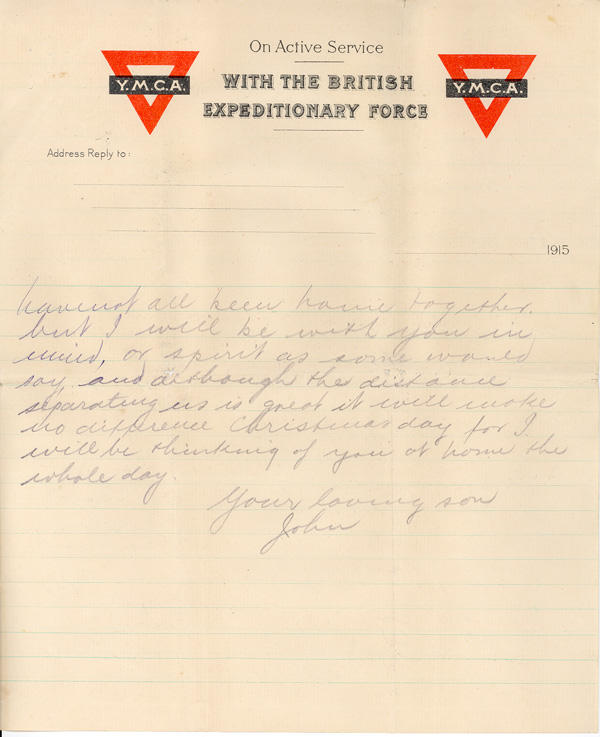 On Active Service
WITH THE BRITISH
EXPEDITIONARY FORCE
Y.M.C.A.
Y.M.C.A.
Address Reply to:
1915
havenot all been home together.
but I will be with you in
mind, or spirit as some would
say, and although the distance
separating us is great it will make
no difference Christmas day for I
will be thinking of you at home the
whole day.
Your loving son
John